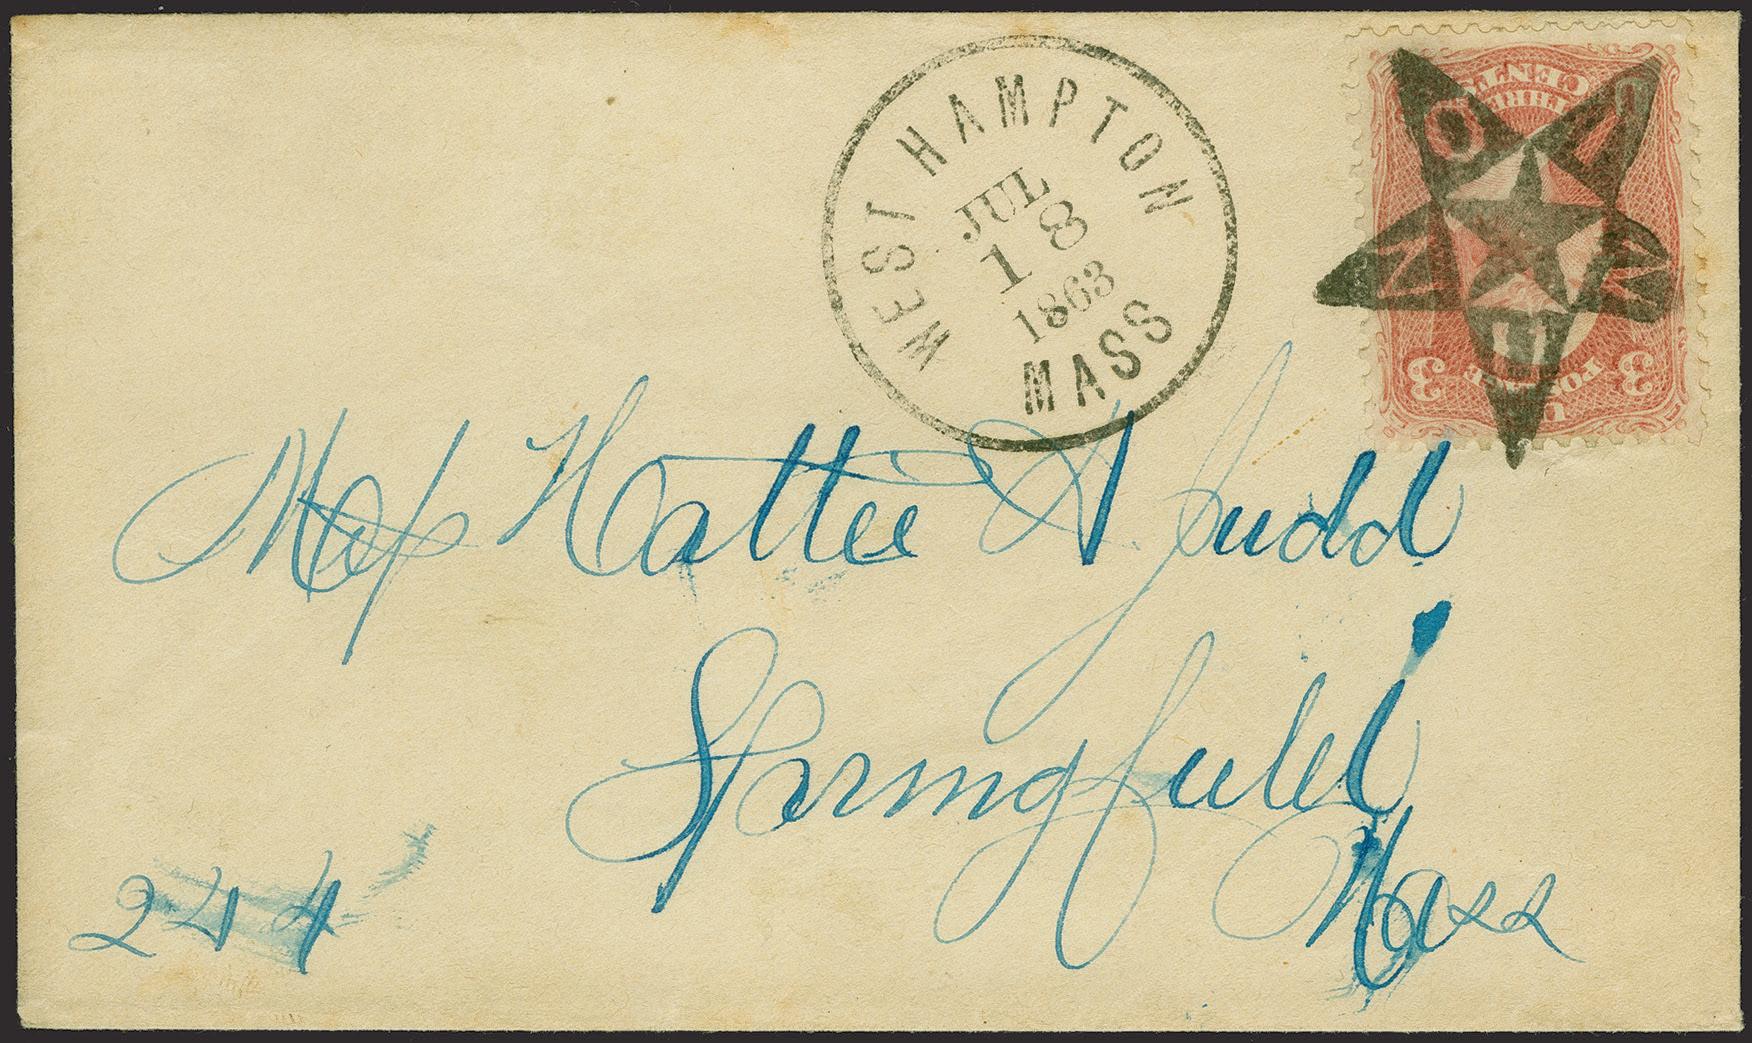 WEST HAMPTON
JUL
18
1863
MASS
THREE
CENTS
UNION
3 3
U POSTAGE
Miss Hattie A. Judd
Springfield
Mass
244